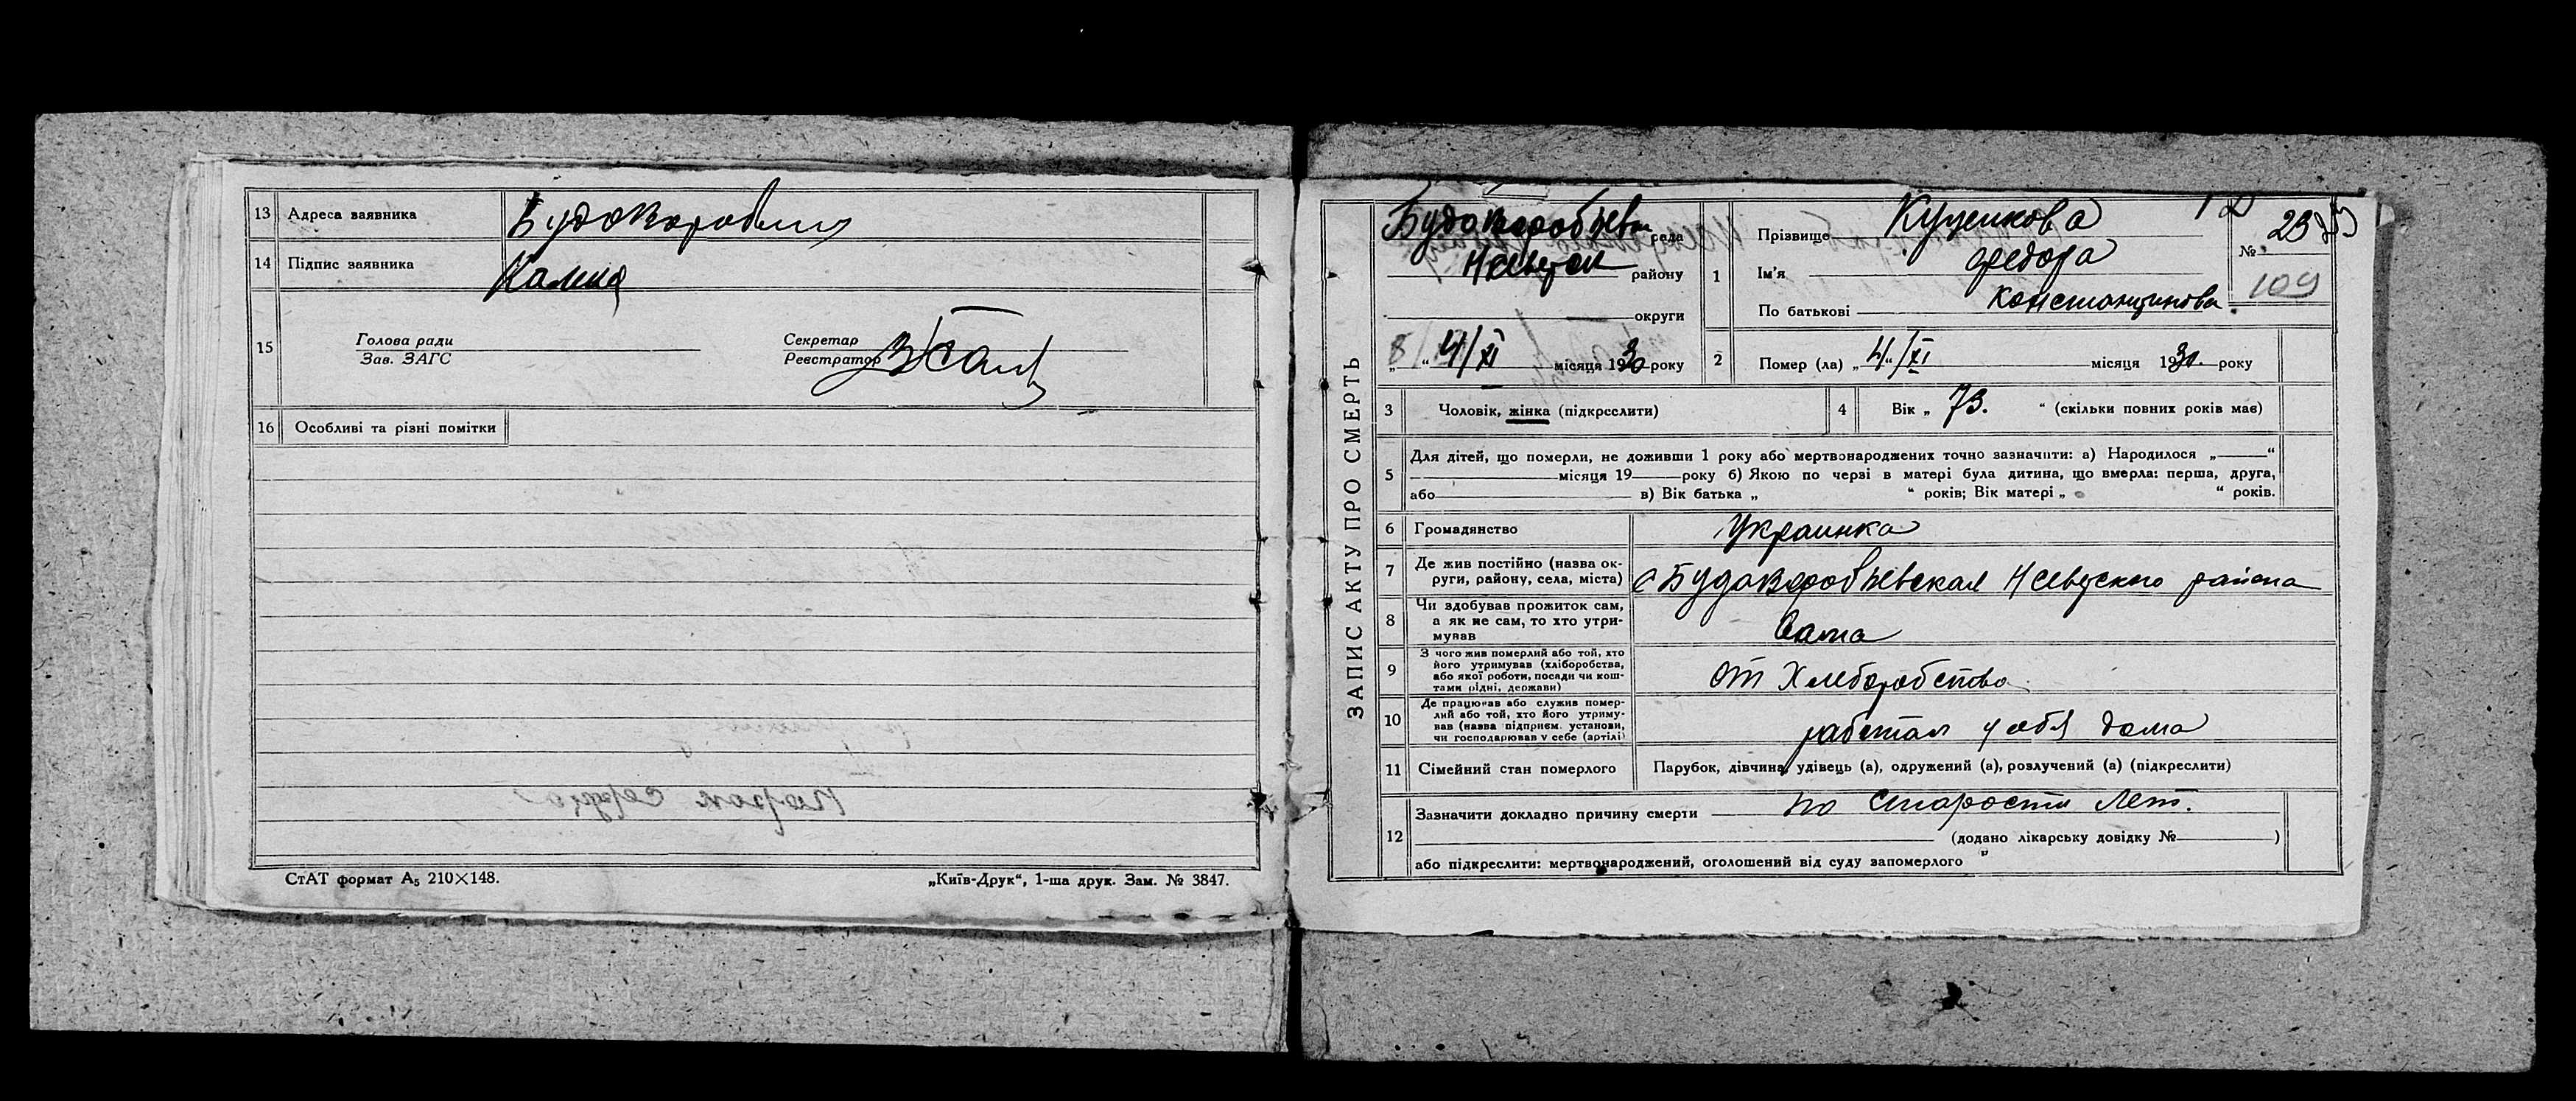 13 Адреса заявника Будоворобьи
14 Підпис заявника Калина
15 Голова ради
Зав. ЗАГС
Секретар
Реєстратор
16 Особливі та різні помітки
СтАТ формат А5 210×148.
„Київ-Друк“, 1-ша друк. Зам. № 3847.
ЗАПИС АКТУ ПРО СМЕРТЬ
Будоворобьевск реда
району
округи
„ “ 4/XI місяця 1930 року
1 Прізвище Куценкова
Ім'я Федора
По батькові Константинова
№ 23
109
2 Помер (ла) „4“/XI місяця 1930. року
3 Чоловік, жінка (підкреслити)
4 Вік „ 73. “ (скільки повних років має)
5 Для дітей, що померли, не доживши 1 року або мертвонароджених точно зазначити: а) Народилося „ “
місяця 19 року б) Якою по черзі в матері була дитина, що вмерла: перша, друга,
або в) Вік батька „ “ років; Вік матері „ “ років.
6 Громадянство Украинка
7 Де жив постійно (назва округи, району, села, міста) с Будаворобьевская Н севецкого района
8 Чи здобував прожиток сам,
а як не сам, то хто утримував
Сама
9 З чого жив померлий або той, хто
його утримував (хліборобства,
або якої роботи, посади чи коштами рідні, держави)
от Хлеборобства
10 Де працював або служив померлий або той, хто його утримував (назва підприєм. установи,
чи господарював у себе (артілі)
работал у себя дома
11 Сімейний стан померлого Парубок, дівчина, удівець (а), одружений (а), розлучений (а) (підкреслити)
12 Зазначити докладно причину смерти по Старости лет.
(додано лікарську довідку № )
або підкреслити: мертвонароджений, оголошений від суду запомерлого